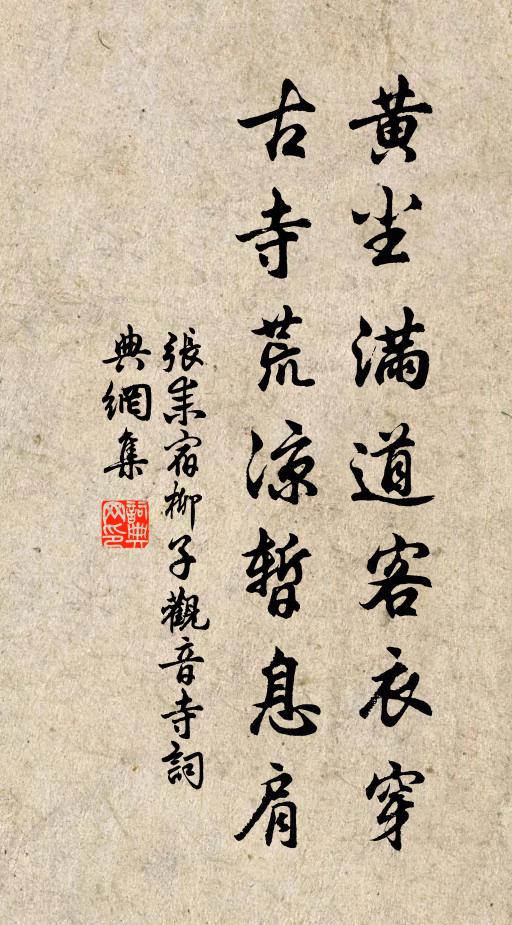 黄尘滿道客衣穿
古寺荒涼暫息肩
張耒宿柳子觀音寺詞
典網集
詞典
网印